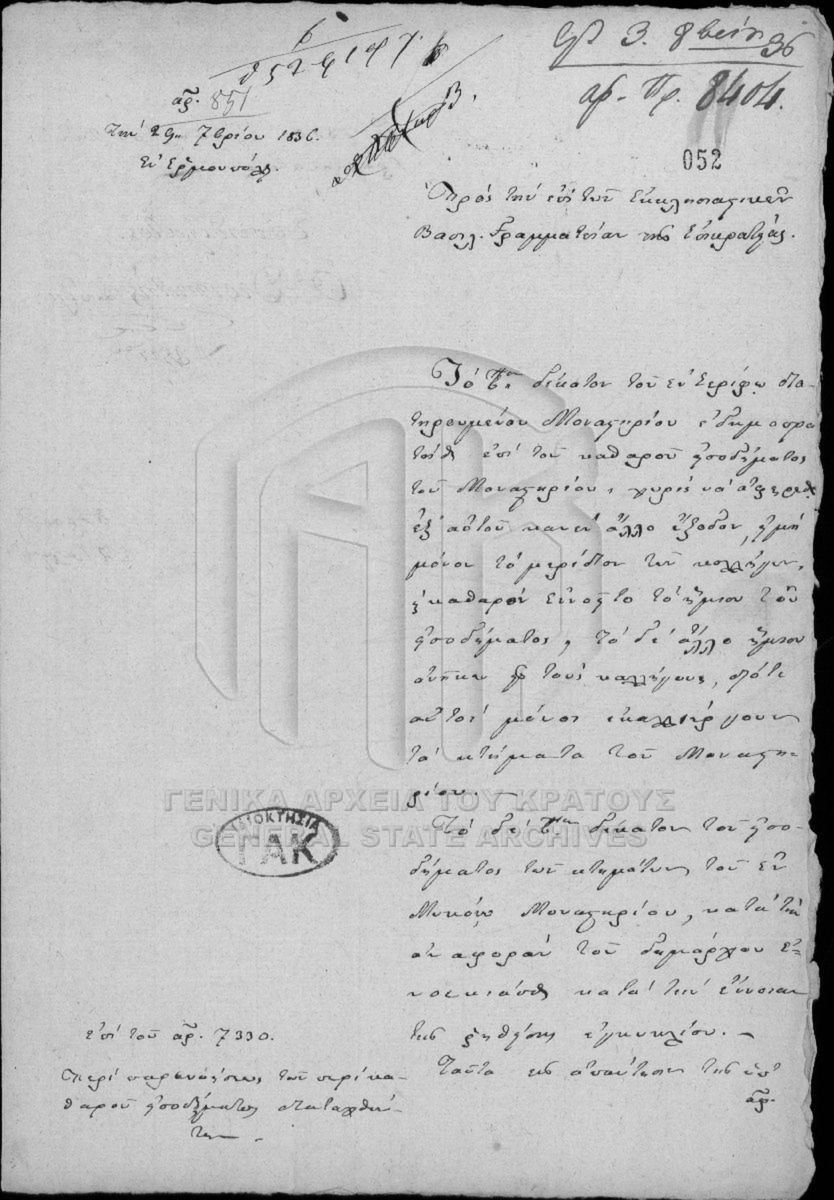 6
8529147
ἀρ. 851
Τὴν 29 7βρίου 1836.
Ἐν Ἑρμουπόλει.
3. 8βρίου 36
αρ. Πρ. 8404.
052
Πρὸς τὴν ἐπὶ τῶν Ἐκκλησιαστικῶν
Βασιλ. Γραμματείαν τῆς Ἐπικρατείας.
Τὸ δέκατον τοῦ ἐν Σερίφῳ δια-
τηρουμένου Μοναστηρίου ἐδημοπρα-
τήθη ἐπὶ τοῦ καθαροῦ εἰσοδήματος
τοῦ Μοναστηρίου, χωρὶς νὰ ἀφαιρεθῇ
ἐξ αὐτοῦ κανὲν ἄλλο ἔξοδον, εἰμὴ
μόνον τὸ μερίδιον τῶν κολλήγων,
καθαρὸν τὸ ἥμισυ τοῦ
εἰσοδήματος, τὸ δὲ ἄλλο ἥμισυ
ἀνῆκεν εἰς τοὺς κολλήγους, διότι
αὐτοὶ μόνοι ἐκαλλιέργουν
τὰ κτήματα τοῦ Μοναστη-
ρίου.
Τὸ δὲ δέκατον τοῦ εἰσο-
δήματος τῶν κτημάτων τοῦ ἐν
Μυκόνῳ Μοναστηρίου, κατὰ τὴν
ἀναφορὰν τοῦ δημάρχου ἐ-
νοικιάσθη κατὰ τὴν ἔννοιαν
τῆς ῥηθείσης ἐγκυκλίου.
Ταῦτα εἰς ἀπάντησιν τῆς ὑπ'
ἀρ.
ἐπὶ τοῦ ἀρ. 7330.
Περὶ τοῦ περὶ κα-
θαροῦ εἰσοδήματος διαταχθέν-
τος.
ΙΔΙΟΚΤΗΣΙΑ
ΓΑΚ
ΓΕΝΙΚΑ ΑΡΧΕΙΑ ΤΟΥ ΚΡΑΤΟΥΣ
GENERAL STATE ARCHIVES